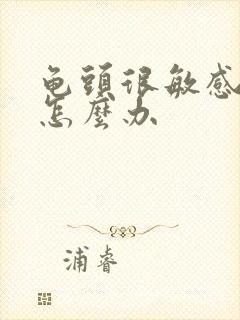 龟頭很敏感
怎麼办
浦睿